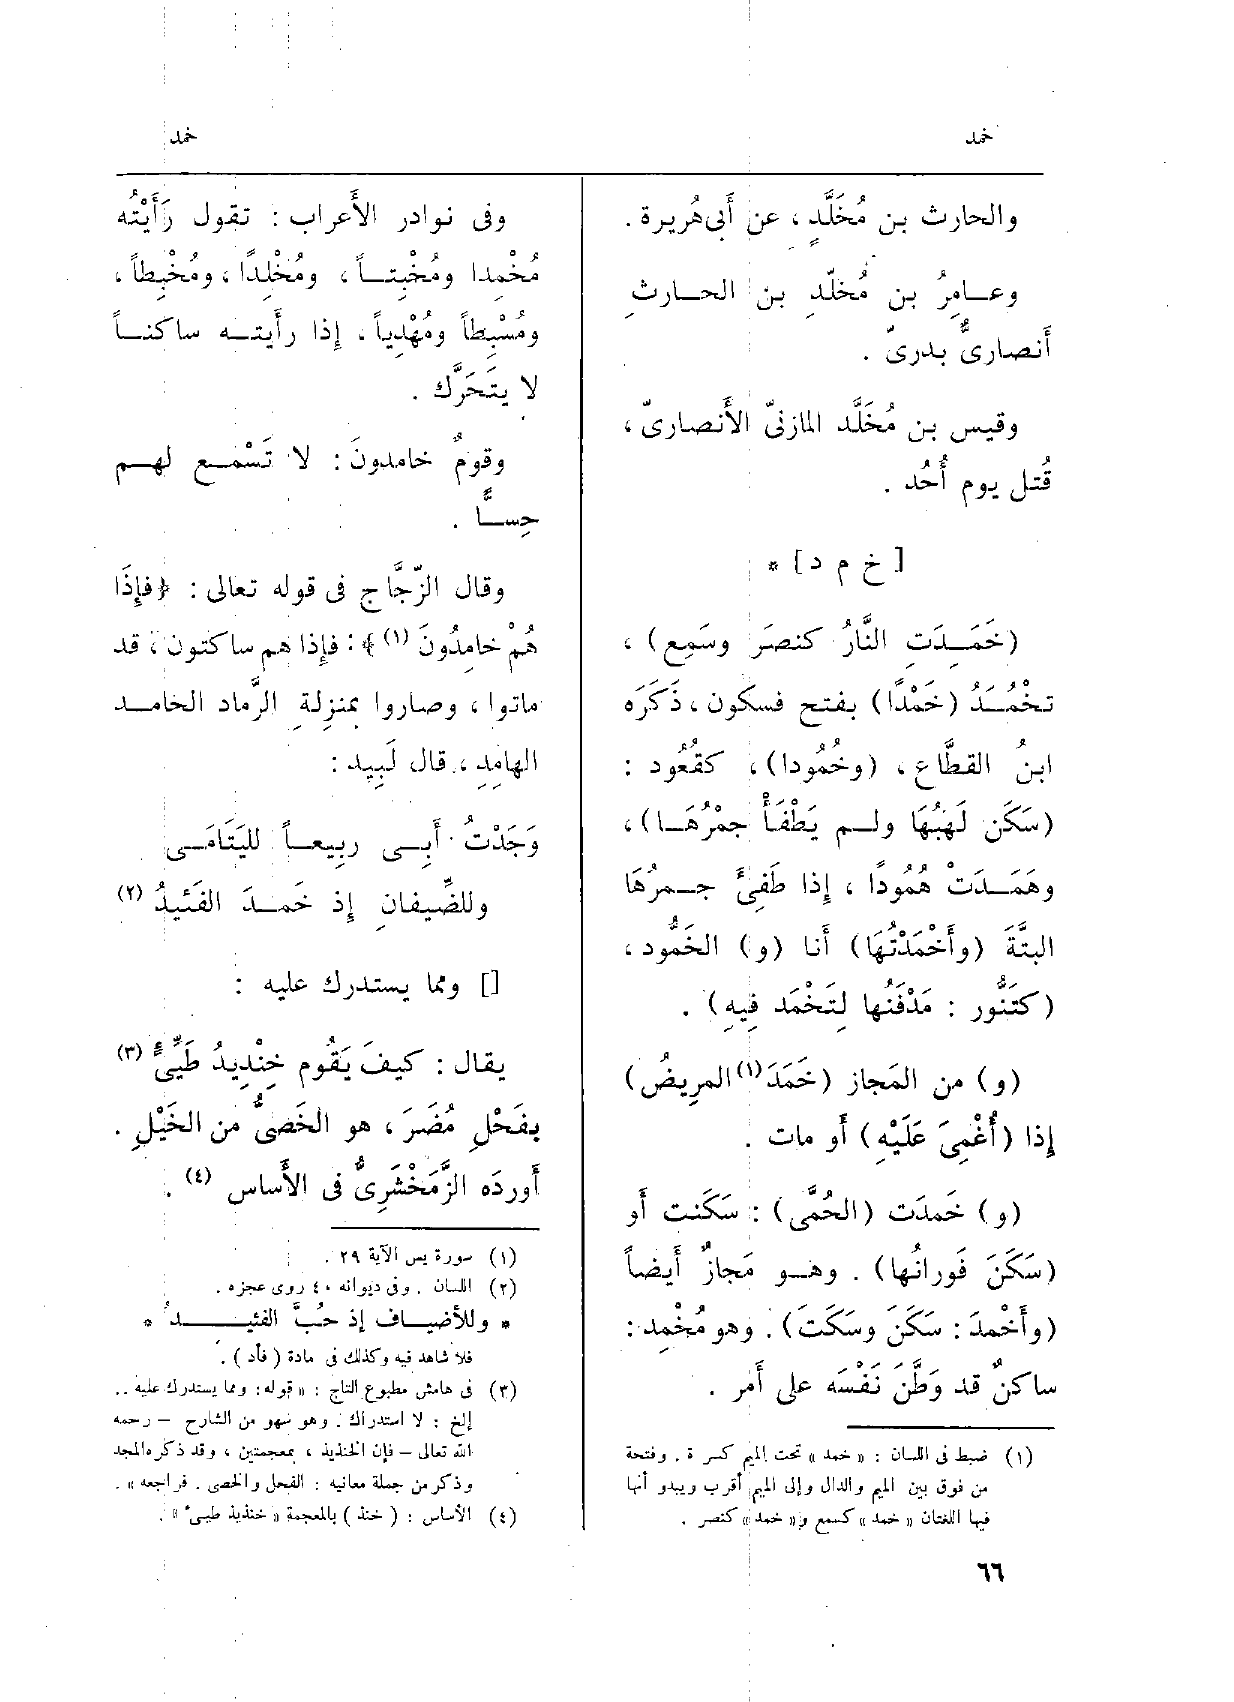 خمد
خمد
والحارث بن مُخَلَّدٍ ، عن أَبى هُريرة .
وعــامِرُ بن مُخلّدِ بن الحــارثِ
أَنصارىٌّ بدرىّ .
وقيس بن مُخَلَّد المازنىّ الأَنصارىّ ،
قُتل يوم أُحُد .
[ خ م د ] *
(خَمَــدِتِ النَّارُ كنصَر وسَمِع) ،
تخْمُــدُ (خَمْدًا) بفتح فسكون ، ذَكَرَه
ابنُ القطَّاع ، (وخُمُودا) ، كقُعُود :
(سَكَن لَهبُهَا ولــم يَطْفَأْ جمْرُهَــا) ،
وهَمَــدَتْ هُمُودًا ، إذا طَفِىَٔ جــمرُهَا
البتَّةَ (وأَخْمَدْتُهَا) أَنا (و) الخَمُّود ،
(كتَنُّور : مَدْفَنُها لِتَخْمَد فِيهِ) .
(و) من المَجاز (خَمَدَ (١) المرِيضُ)
إِذا (أُغْمِىَ عَلَيْهِ) أَو مات .
(و) خَمدَت (الحُمَّى) : سَكَنت أَو
(سَكَنَ فَورانُها) . وهــو مَجازٌ أَيضاً
(وأَخْمدَ : سَكَنَ وسَكَتَ) . وهو مُخْمِد :
ساكنٌ قد وَطَّنَ نَفْسَه على أَمر .
(١) ضبط فى اللسان : « خمد » تحت الميم كسرة . وفتحة
من فوق بين الميم والدال وإلى الميم أقرب ويبدو أنها
فيها اللغتان « خمد » كسمع و « خمد » كنصر .
وفى نوادر الأَعراب : تقول رَأَيْتُه
مُخْمِدا ومُخْبِتــاً ، ومُخْلِدًا ، ومُخْبِطاً ،
ومُسْبِطاً ومُهْدِياً ، إِذا رأَيتــه ساكنــاً
لا يتَحَرَّك .
وقومٌ خامدونَ : لا تَسْمــع لهــم
حِســًّا .
وقال الزّجَّاج فى قوله تعالى : ﴿فإِذَا
هُمْ خامِدُونَ (١) ﴾ : فإِذا هم ساكتون ، قد
ماتوا ، وصاروا بمنزلِة الرَّماد الخامــد
الهامِدِ ، قال لَبِيد :
وَجَدْتُ أَبِــى ربيعــاً لليَتَامَــى
وللضِّيفانِ إِذ خَمــدَ الفَئيدُ (٢)
[] ومما يستدرك عليه :
يقال : كيفَ يَقُوم خِنْدِيدُ طَيِّئٍ (٣)
بفَحْلِ مُضَرَ ، هو الخَصىُّ من الخَيْلِ .
أَوردَه الزَّمَخْشَرِىٌّ فى الأَساس (٤) .
(١) سورة يس الآية ٢٩ .
(٢) اللسان . وفى ديوانه ٤٠ روى عجزه .
* وللأضيــاف إذ حُبَّ الفئيــــــدُ *
فلا شاهد فيه وكذلك فى مادة ( فأد ) .
(٣) فى هامش مطبوع التاج : « قوله : ومما يستدرك عليه ..
إلخ : لا استدراك . وهو سهو من الشارح – رحمه
الله تعالى – فإن الخنذيذ ، بمعجمتين ، وقد ذكره المجد
وذكر من جملة معانيه : الفحل والخصى . فراجعه » .
(٤) الأساس : ( خنذ ) بالمعجمة « خنذيذ طيىء » .
٦٦